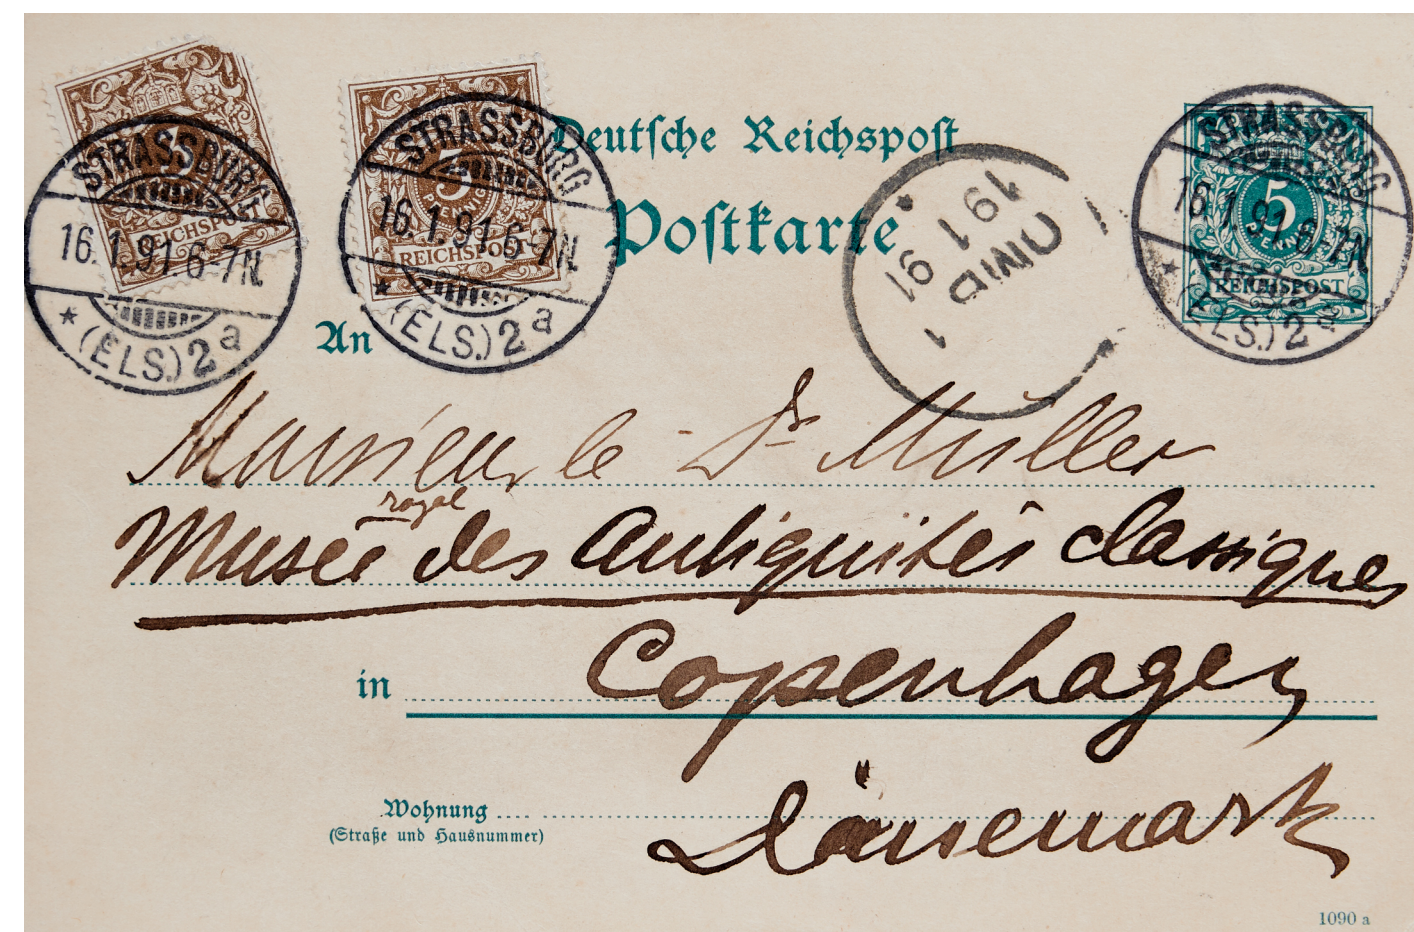 STRASSBURG
16.1.91.6-7N.
* (ELS.) 2a
3
REICHSPOST
STRASSBURG
16.1.91.6-7N.
* (ELS.) 2a
3
PFENNIG
REICHSPOST
Deutsche Reichspost
Postkarte
OMB
1
19 1 91
STRASSBURG
16.1.91.6-7N.
* (ELS.) 2a
5
PFENNIG
REICHSPOST
An
Monsieur le Dr Müller
royal
Musée des Antiquités classiques
in Copenhagen
Dänemark
Wohnung
(Straße und Hausnummer)
1090 a